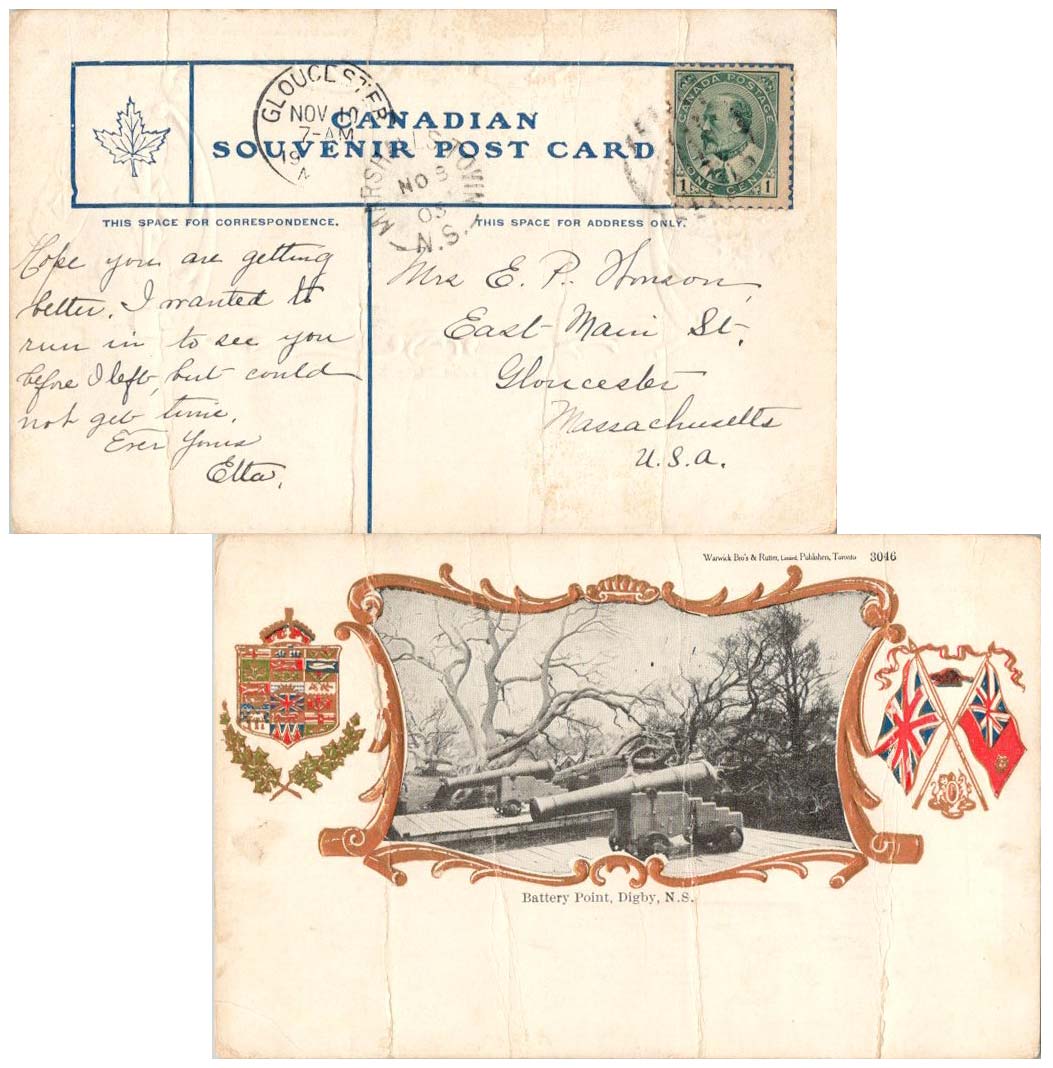 CANADIAN
SOUVENIR POST CARD
GLOUCESTER
NOV 10
7-AM
19
MARSHALLSTOWN
NO 8
05
N.S.
CANADA POSTAGE
1 ONE CENT 1
THIS SPACE FOR CORRESPONDENCE.
THIS SPACE FOR ADDRESS ONLY.
Hope you are getting
better. I wanted to
run in to see you
before I left, but could
not get time.
Ever Yours
Etta.
Mrs E. P.
East Main St.
Gloucester
Massachusetts
U.S.A.
Warwick Bro's & Rutter, Limited, Publishers, Toronto 3046
Battery Point, Digby, N.S.